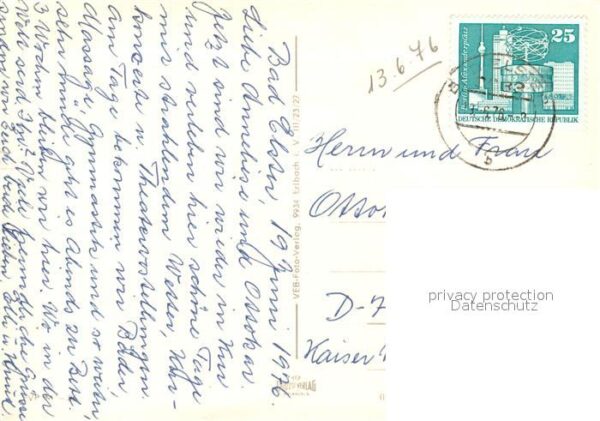 Bad Elster, 19 Juni 1976.
Liebe Anneliese und Ottokar.
Jetzt sind wir wieder in Kur
und verleben hier schöne Tage
mit strahlendem Wetter, Kur-
konzerte u. Theatervorstellungen.
am Tage bekommen wir Bäder,
Massage, Gymnastik und so weiter,
sehr müde geht es Abends zu Bett.
3 Wochen bleiben wir hier. Wo in der
Welt seid Ihr? Viele herzliche Grüsse
senden wir Euch beid Lieben,
VEB-Foto-Verlag, 9934 Erlbach I. V. III/23/27
13.6.76
25
Berlin, Alexanderplatz
DEUTSCHE DEMOKRATISCHE REPUBLIK
b
Herrn und Frau
Ottok
D-7
Kaiser
privacy protection
Datenschutz